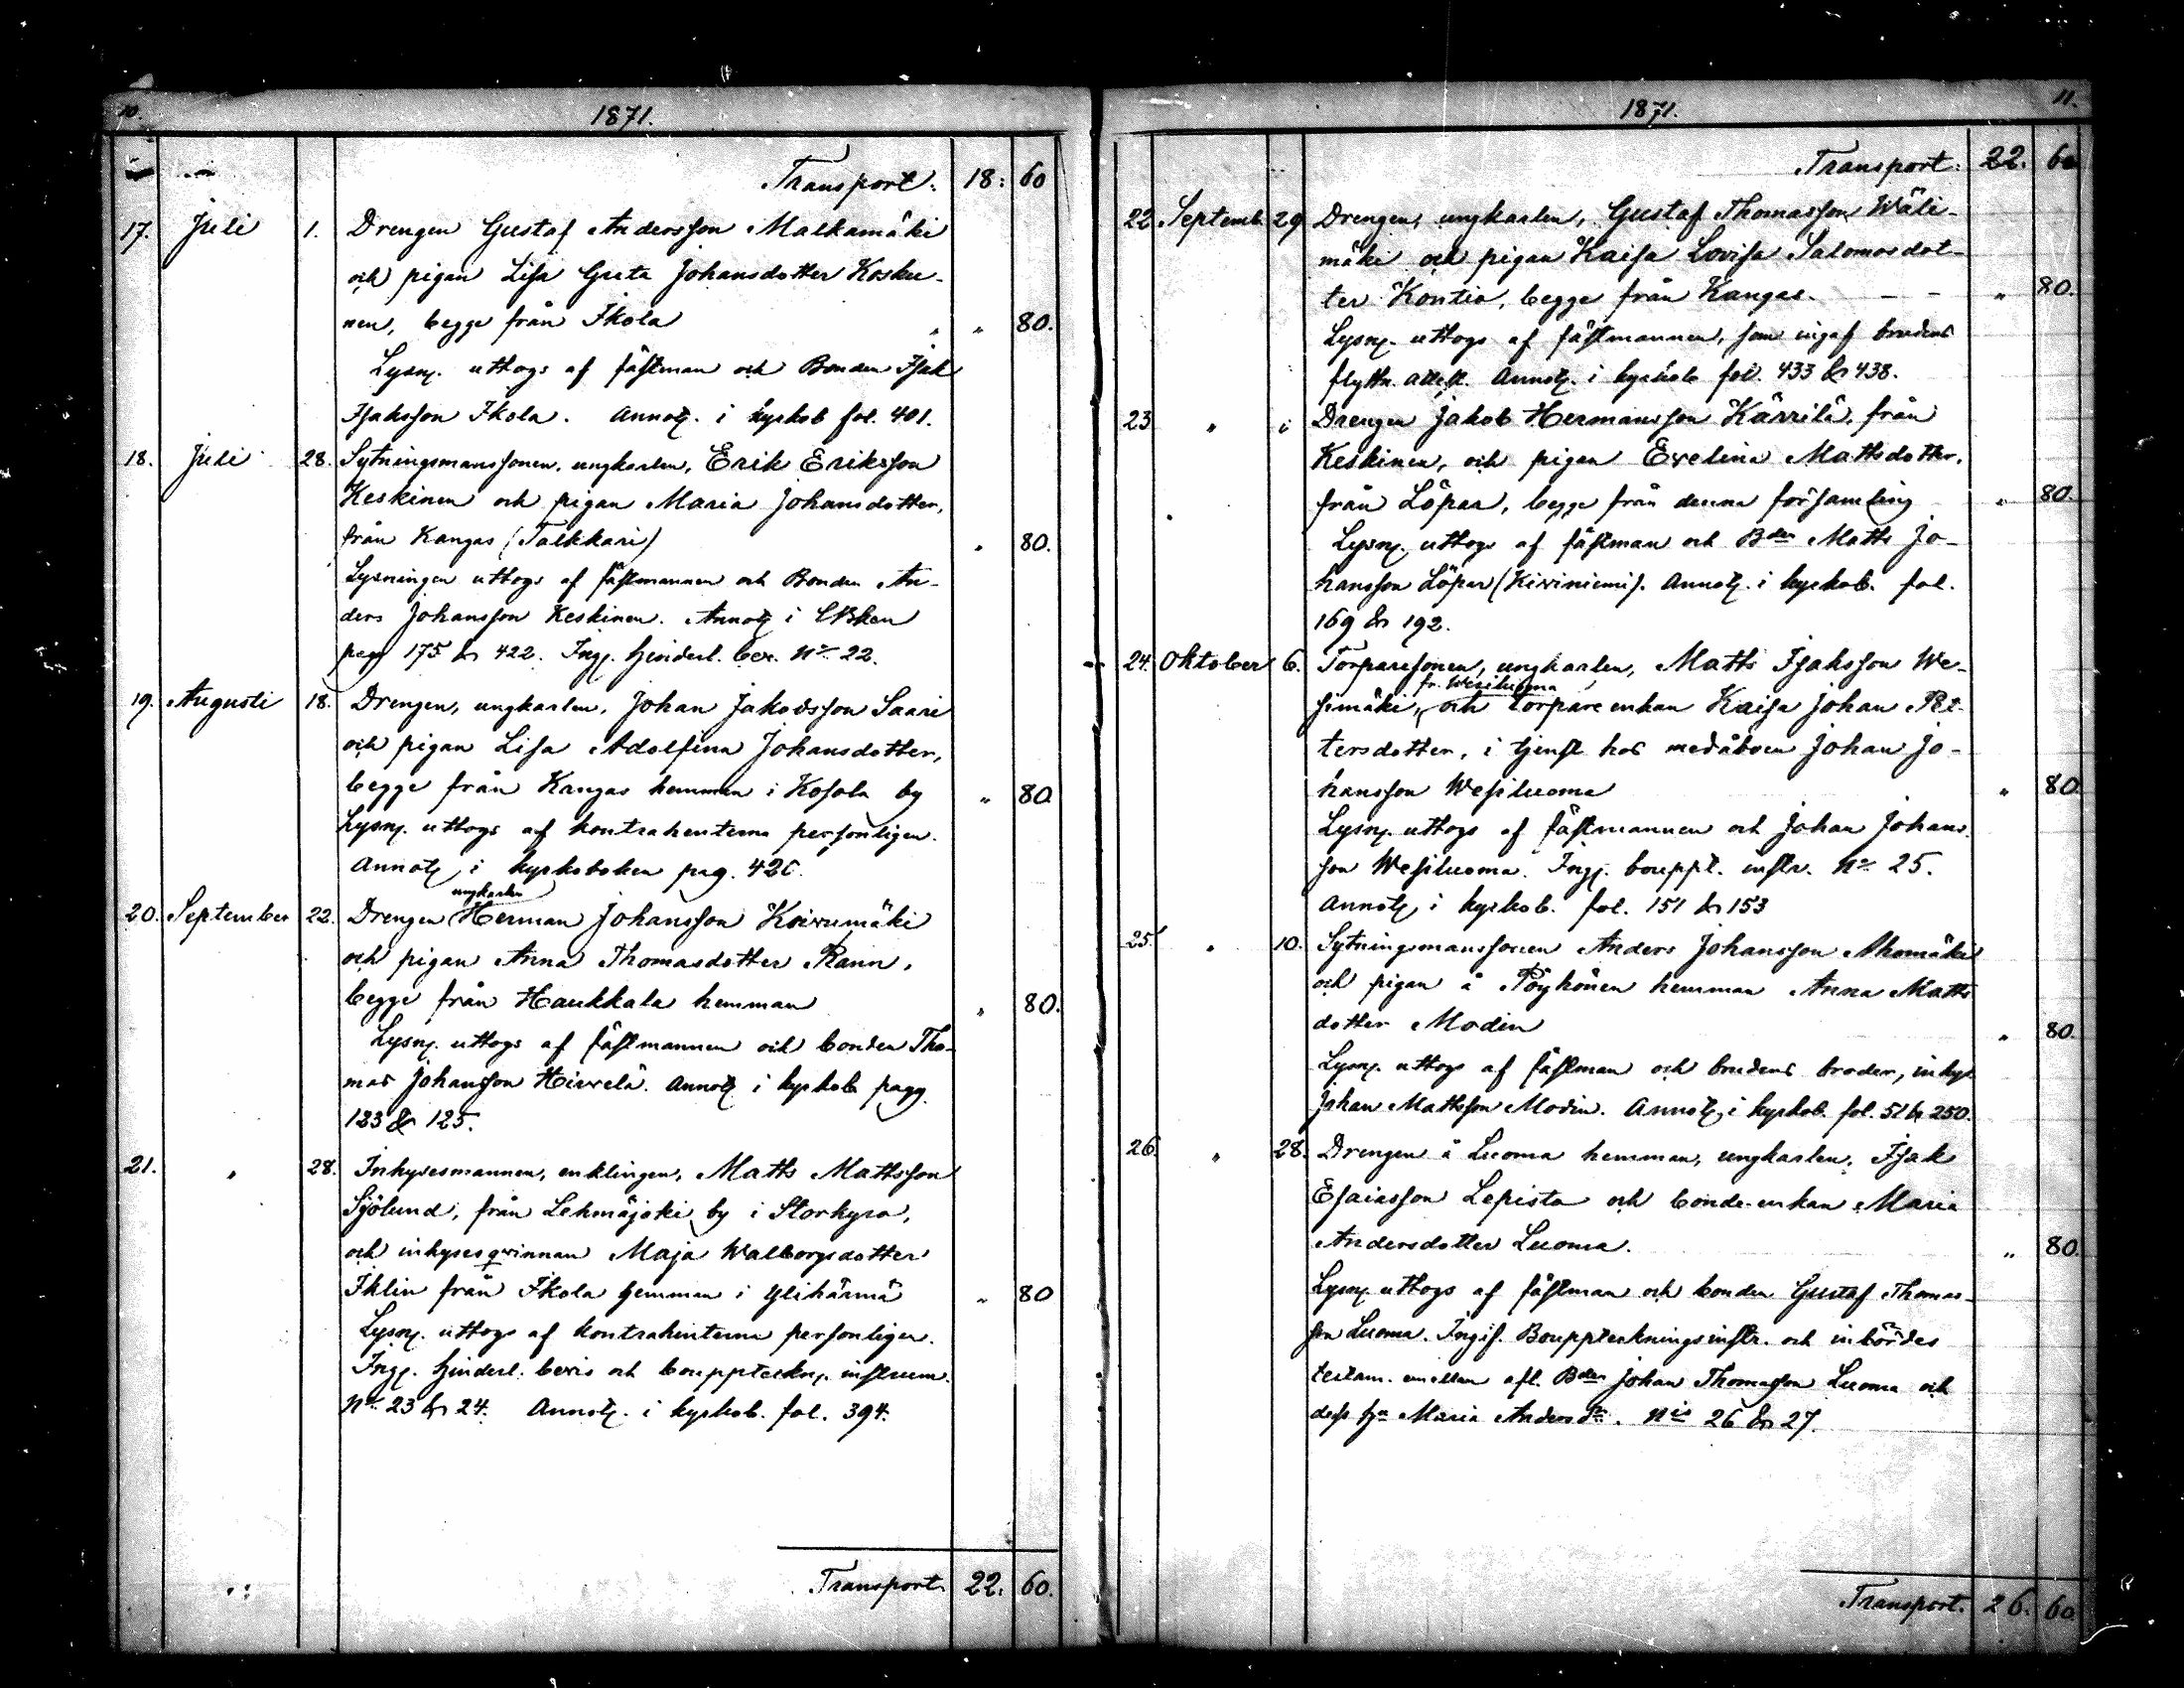 10.
1871.
Transport. 18: 60
17. Juli 1. Drengen Gustaf Andersson Malkamäki
och pigan Lisa Greta Johansdotter Kosku-
nen, begge från Ikola " " 80.
Lysn. uttogs af fästman och Bonden Isak
Isaksson Ikola. Annot. i kyrkob fol. 401.
18. Juli 28. Sytningsmanssonen, ungkarlen, Erik Eriksson
Keskinen och pigan Maria Johansdotter,
från Kangas (Talkkari) " 80.
Lysningen uttogs af fästmannen och Bonden An-
ders Johansson Keskinen. Annot i
pag 175 & 422. Ing. hinderl. bev. No 22.
19. Augusti 18. Drengen, ungkarlen, Johan Jakobsson Saari
och pigan Lisa Adolfina Johansdotter,
begge från Kangas hemman i Kosola by " 80
Lysn. uttogs af kontrahenterna personligen.
Annot i kyrkoboken pag. 426.
ungkarlen
20. September 22. Drengen Herman Johansson Koivumäki
och pigan Anna Thomasdotter Rann,
begge från Haukkala hemman " 80.
Lysn. uttogs af fästmannen och bonden Tho-
mas Johansson Hirvelä. Annot i kyrkob pagg.
123 & 125.
21. " 28. Inhysesmannen, enklingen, Matts Mattsson
Sjölund, från Lehmäjoki by i Storkyro,
och inhysesqvinnan Maja Walborgsdotter
Iklin från Ikola hemman i Ylihärmä " 80
Lysn. uttogs af kontrahenterna personligen.
Ing. hinderl. bevis och bouppteckn. instrum.
No 23 & 24. Annot. i kyrkob. fol. 394.
Transport. 22. 60.
11.
1871.
Transport. 22. 60
22 Septemb. 29 Drengen, ungkarlen, Gustaf Thomasson Wäli-
mäki och pigan Kaisa Lovisa Salomosdot-
ter Kontio, begge från Kangas. - - " 80.
Lysn. uttogs af fästmannen, som ingaf brudens
flyttn. attest. Annot. i kyrkob fol. 433 & 438.
23 " " Drengen Jakob Hermansson Kärrilä, från
Keskinen, och pigan Evelina Mattsdotter,
från Löpar, begge från denna församling " 80.
Lysn. uttogs af fästman och Bden Matts Jo-
hansson Löpar (Kiviniemi). Annot. i kyrkob. fol.
169 & 192.
24. Oktober 6. Torparesonen, ungkarlen, Matts Isaksson We-
fr. Wesiluoma
simäki, och torpare enkan Kaisa Johan Pet-
tersdotter, i tjenst hos medåboen Johan Jo-
hansson Wesiluoma " 80
Lysn. uttogs af fästmannen och Johan Johans-
son Wesiluoma. Ing. bouppt. instr. No 25.
Annot i kyrkob. fol. 151 & 153
25. " 10. Sytningsmanssonen Anders Johansson Ahomäki
och pigan å Pöyhönen hemman Anna Matts
dotter Modin " 80.
Lysn. uttogs af fästman och brudens broder, inhys.
Johan Mattsson Modin. Annot. i kyrkob. fol. 51 & 250.
26. " 28. Drengen å Luoma hemman, ungkarlen, Isak
Esaiasson Lepisto och bonde-enkan Maria
Andersdotter Luoma. " 80.
Lysn. uttogs af fästman och bonden Gustaf Thomas-
son Luoma. Ingif. Bouppteckningsinstr. och inbördes
testam. emellan afl. Bden Johan Thomasson Luoma och
dess hu Maria Andersdr. Nis 26 & 27.
Transport. 26. 60